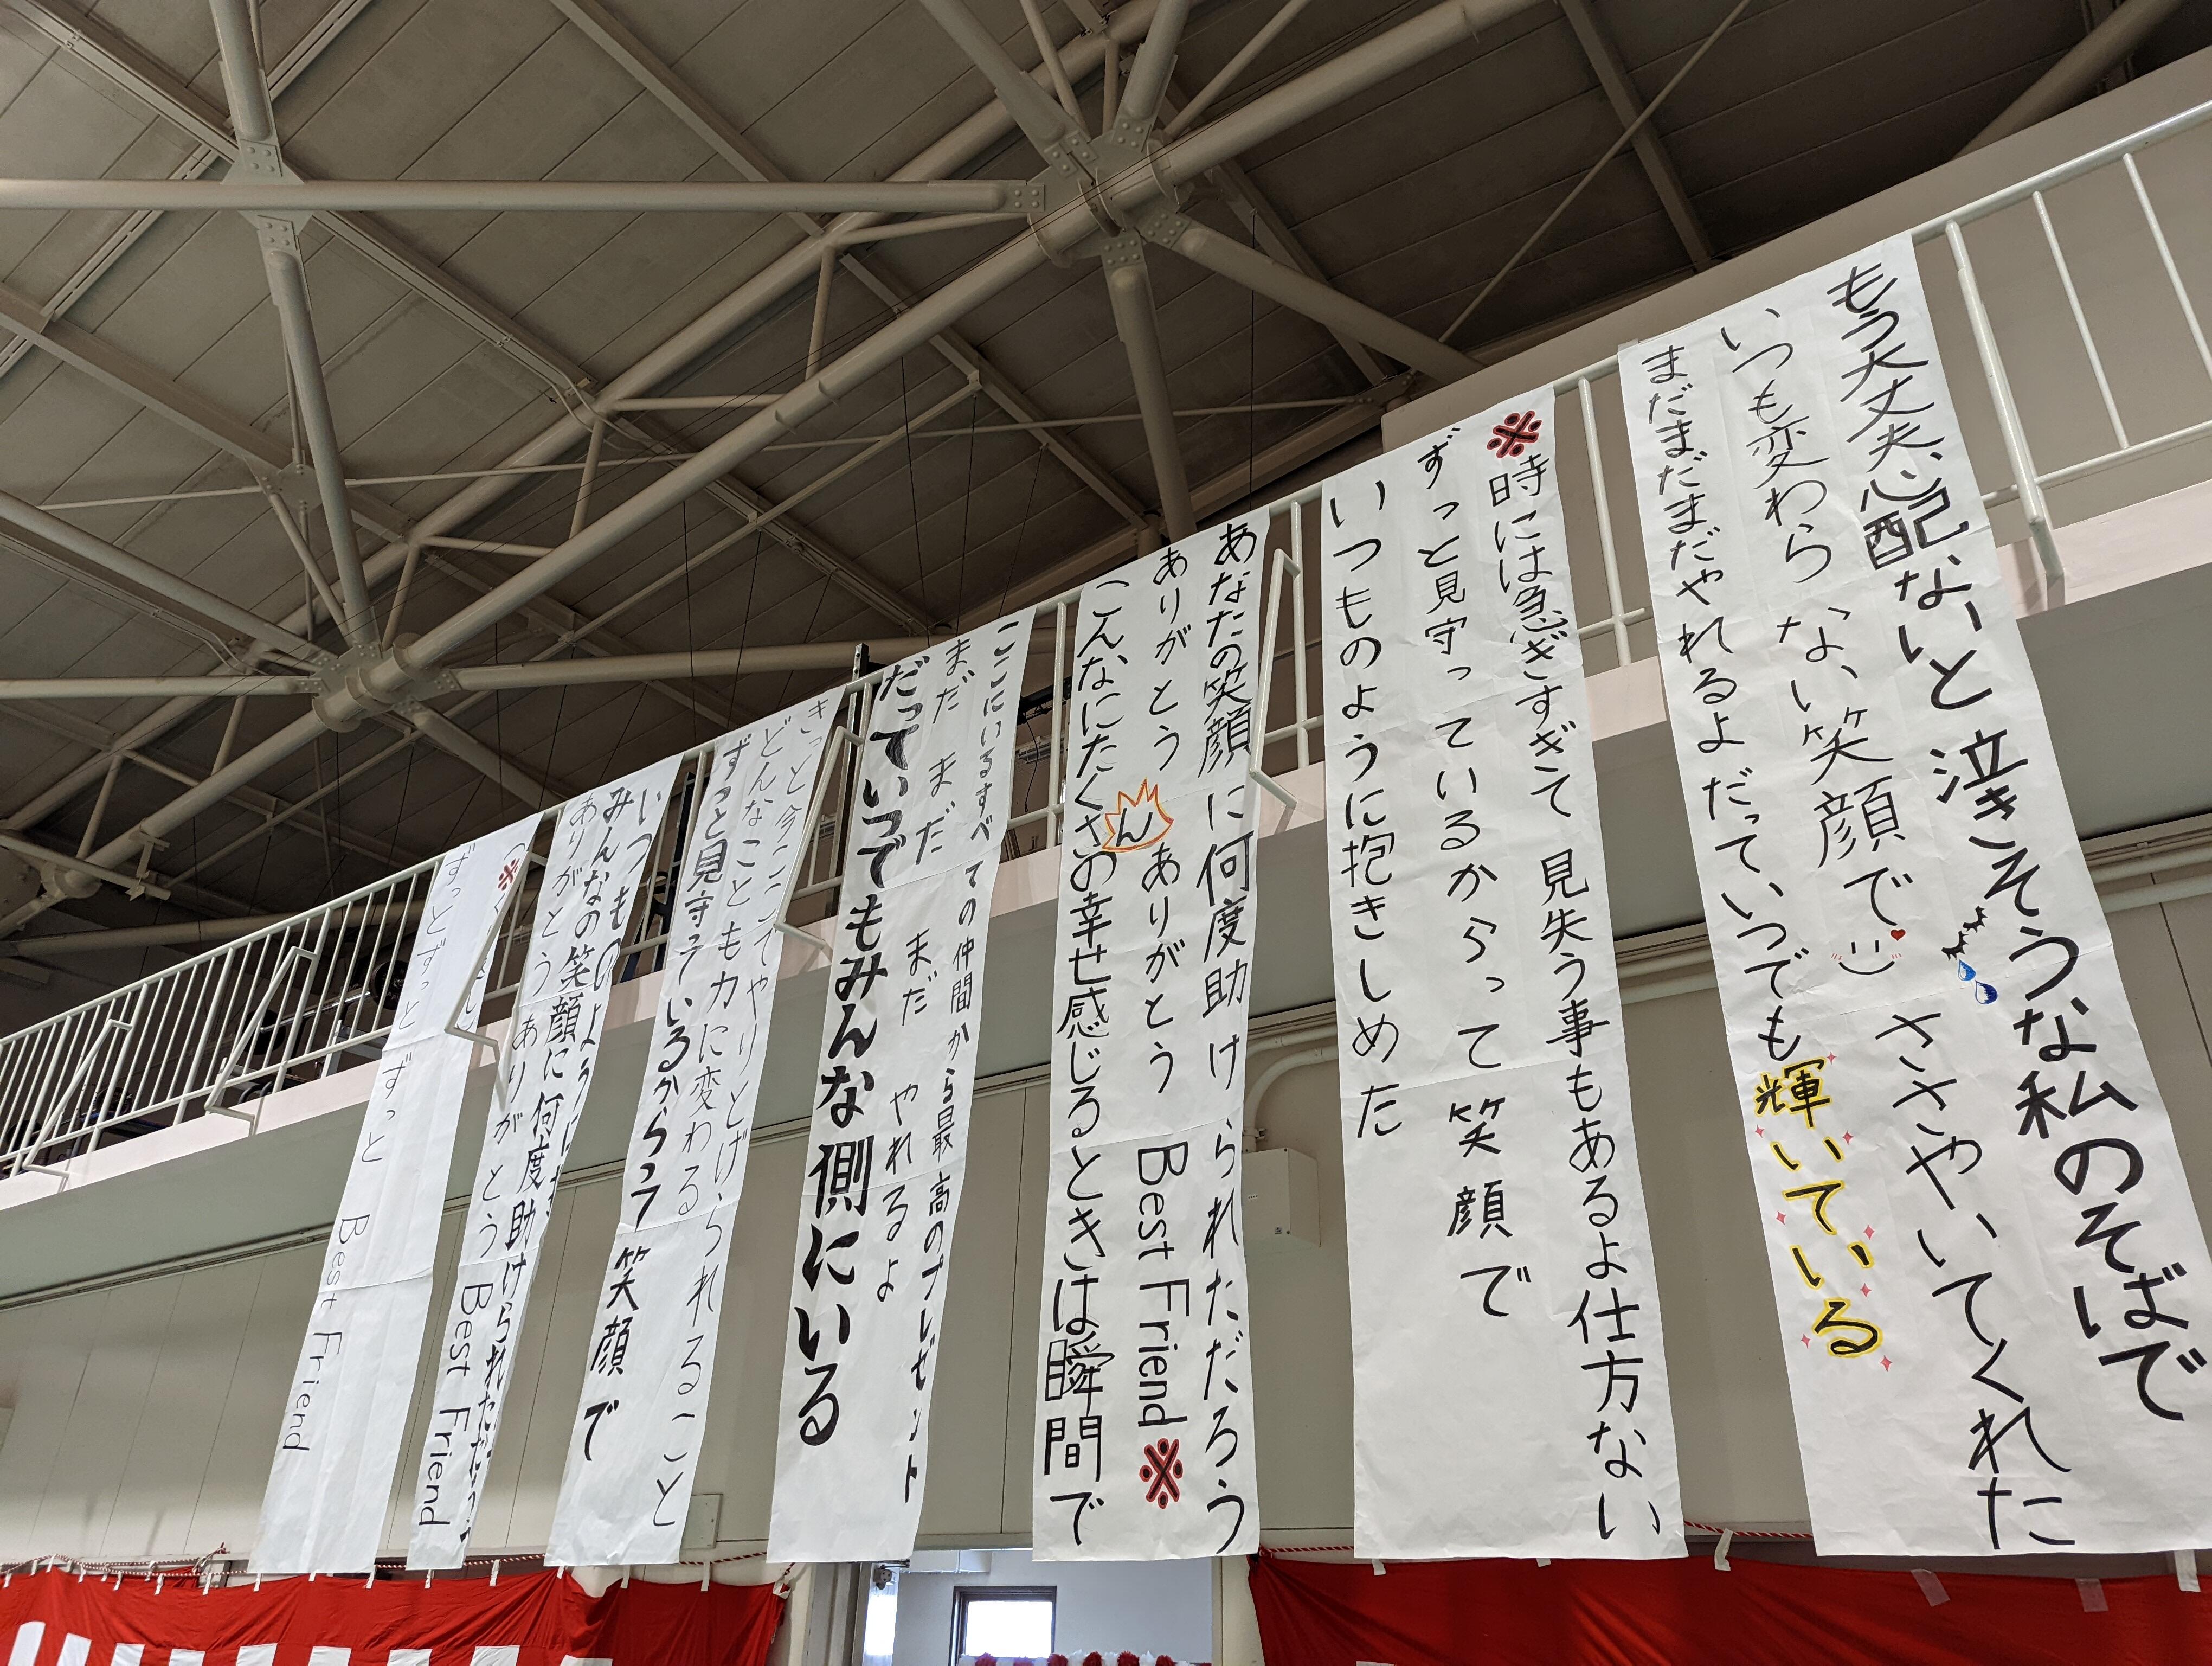 もう大丈夫心配ないと泣きそうな私のそばで
いつも変わらない笑顔でささやいてくれた
まだまだまだやれるよだっていつでも輝いている
※時には急ぎすぎて見失う事もあるよ仕方ない
ずっと見守っているからって笑顔で
いつものように抱きしめた
あなたの笑顔に何度助けられただろう
ありがとうありがとう Best Friend※
こんなにたくさんの幸せ感じるときは瞬間で
ここにいるすべての仲間から最高のプレゼント
まだまだまだやれるよ
だっていつでもみんな側にいる
きっと今ここでやりとげられること
どんなことも力に変わる
ずっと見守っているからって笑顔で
いつものように
みんなの笑顔に何度助けられただろう
ありがとうありがとう Best Friend
※
ずっとずっとずっと Best Friend